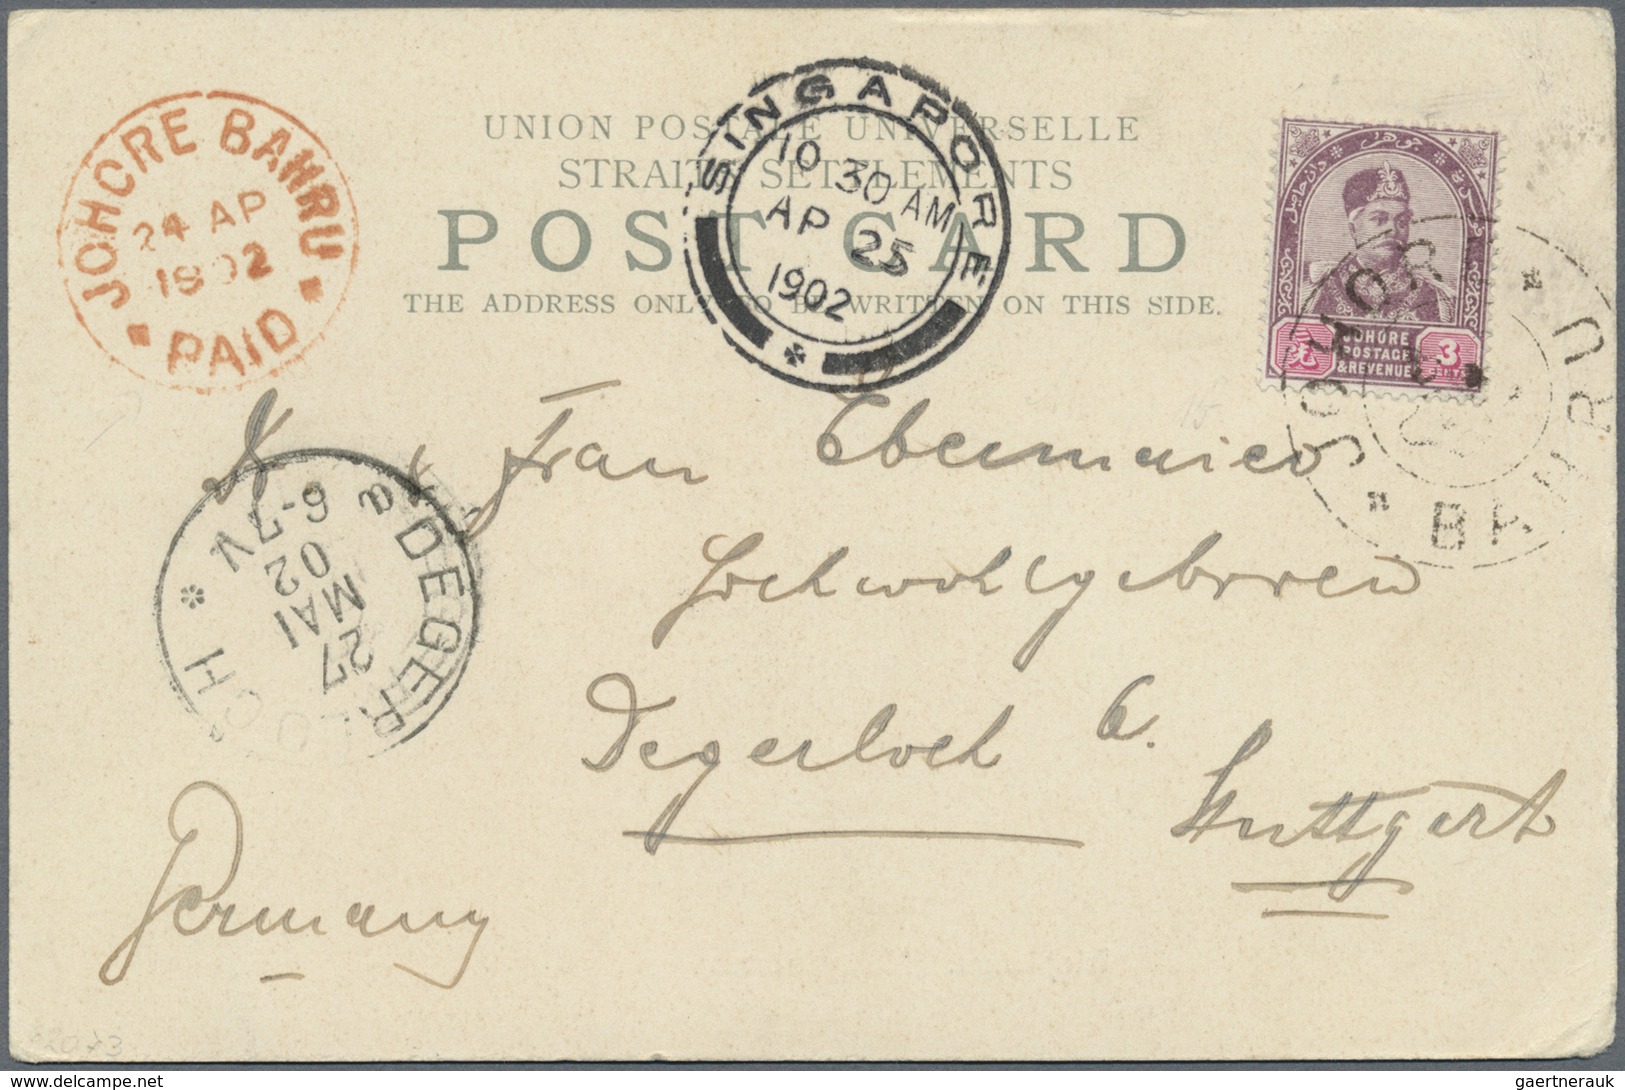 UNION POSTALE UNIVERSELLE
STRAITS SETTLEMENTS
POST CARD
THE ADDRESS ONLY TO BE WRITTEN ON THIS SIDE.
JOHORE BAHRU
24 AP
1902
PAID
SINGAPORE
10 30 AM
AP 25
1902
JOHORE
POSTAGE
& REVENUE
3
CENTS
JOHOR
BAHRU
Frau
Hochwohlgeborren
Degerloch b.
Stuttgart
Germany
DEGERLOCH
27
MAI
02
6-7V
delcampe.net
gaertnerauk